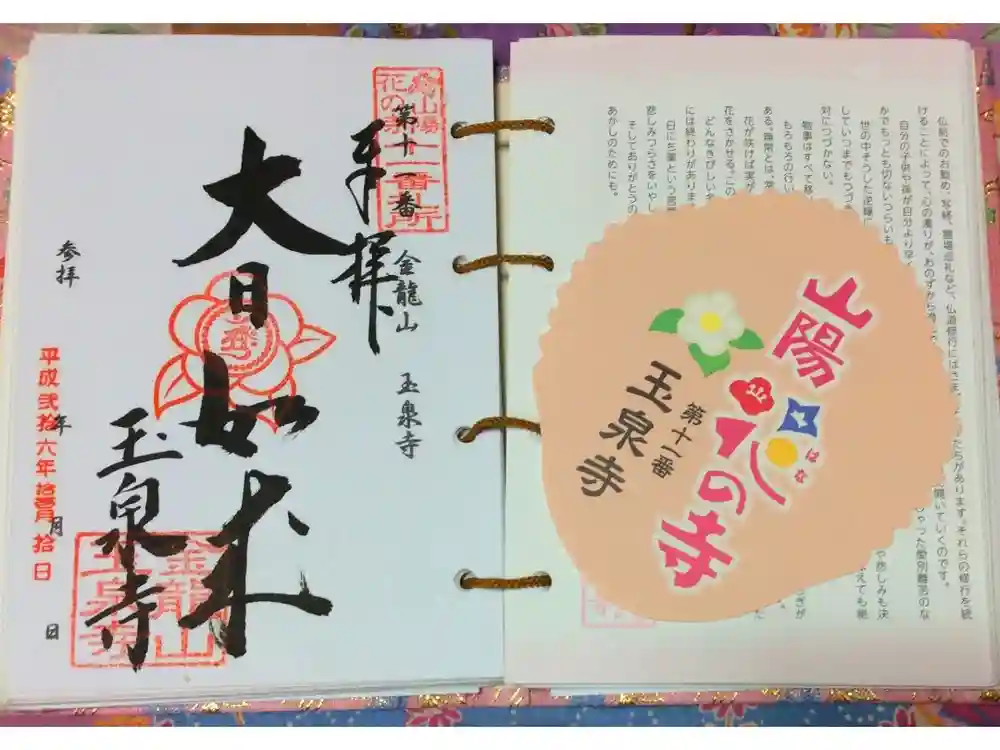 第十一番
奉拝
金龍山 玉泉寺
大日如来
玉泉寺
参拝
年
月
日
平成弐拾六年拾壹月拾日
山陽花の寺
十一番札所
金龍山
玉泉寺
仏前でのお勤め、写経、霊場巡礼など、仏道修行にはさま
たちがあります。それらの修行を続
けることによって、心の濁りが、おのずから
開いていくのです。
自分の子供や孫が自分より早く
ゃった愛別離苦のな
かでもっとも切ないつらいも
世の中そうした逆縁に
や悲しみも決
していつまでもつづき
絶えても絶
対につづかない。
物事はすべて移
もろもろの行い
ある。無常とは、常
花をさかせる。この
花が咲けば実が
どんなきびしい冬
には終わりがありま
日にち薬という言葉
悲しみつらさをいやし
そしてありがとうの
あかしのためにも。
山陽
花の寺
はな
第十一番
玉泉寺